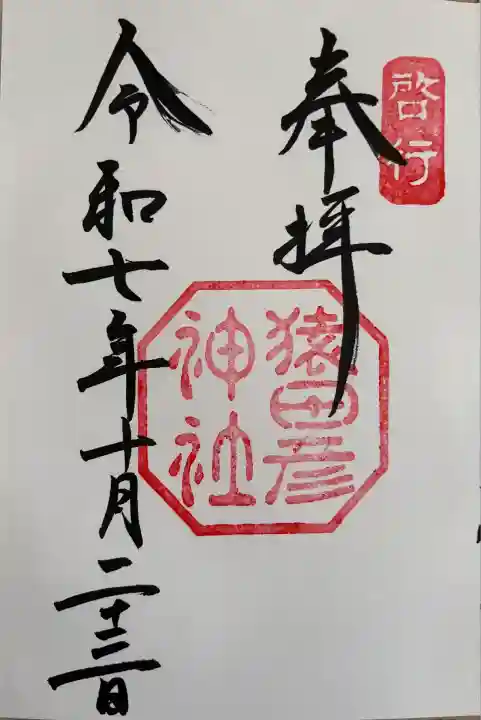 啓行
奉拝
猿田彦
神社
令和七年十月二十三日